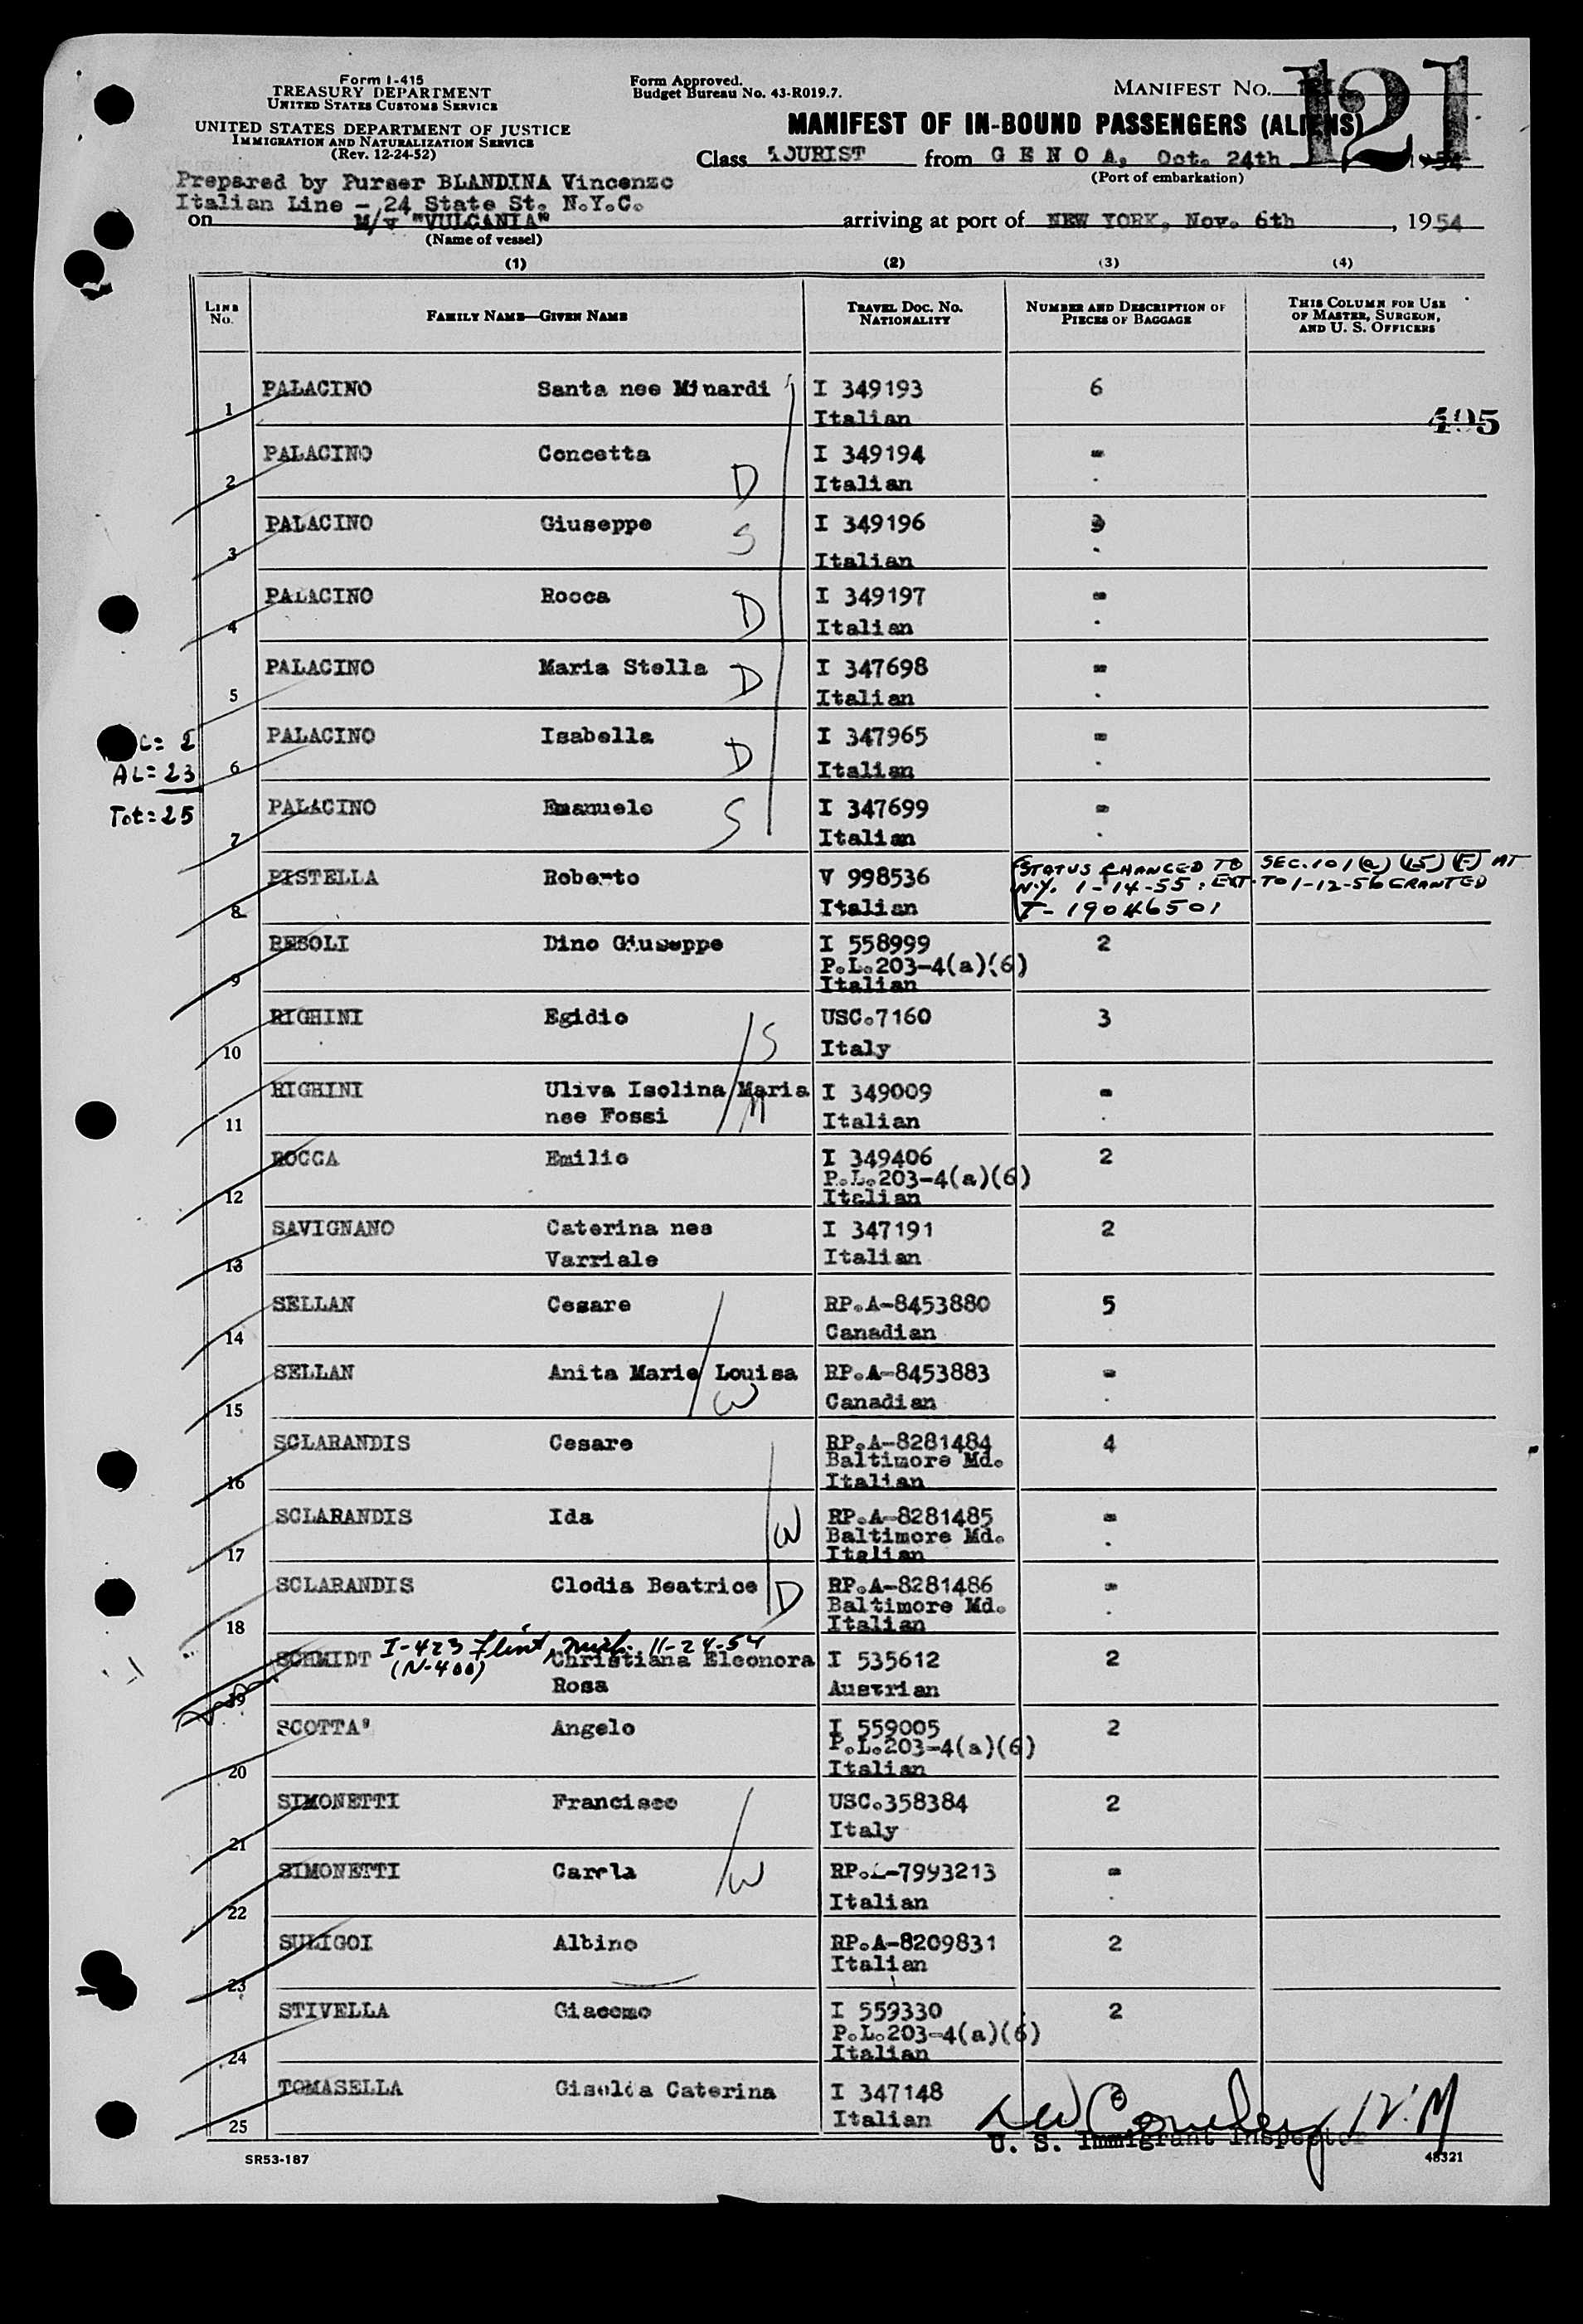 Form I-415
TREASURY DEPARTMENT
UNITED STATES CUSTOMS SERVICE
UNITED STATES DEPARTMENT OF JUSTICE
IMMIGRATION AND NATURALIZATION SERVICE
(Rev. 12-24-52)
Form Approved.
Budget Bureau No. 43-R019.7.
MANIFEST No. 121
MANIFEST OF IN-BOUND PASSENGERS (ALIENS)
Class TOURIST from G E N O A, Oct. 24th 1954
(Port of embarkation)
Prepared by Purser BLANDINA Vincenzo
Italian Line - 24 State St. N.Y.C.
on M/v "VULCANIA" arriving at port of NEW YORK, Nov. 6th, 1954
(Name of vessel)
(1) (2) (3) (4)
LINE No. FAMILY NAME—GIVEN NAME TRAVEL DOC. NO. NATIONALITY NUMBER AND DESCRIPTION OF PIECES OF BAGGAGE THIS COLUMN FOR USE OF MASTER, SURGEON, AND U. S. OFFICERS
1 PALACINO Santa nee Minardi I 349193 6
Italian
495
2 PALACINO Concetta D I 349194 -
Italian
3 PALACINO Giuseppe S I 349196
Italian
4 PALACINO Rocca D I 349197 -
Italian
5 PALACINO Maria Stella D I 347698 -
Italian
6 PALACINO Isabella D I 347965 -
Italian
C= 2
AL= 23
Tot= 25
7 PALACINO Emanuele S I 347699 -
Italian
8 PISTELLA Roberto V 998536
Italian
STATUS CHANGED TO SEC. 101(a)(15)(F) AT
N.Y. 1-14-55; EXT. TO 1-12-56 GRANTED
T-19046501
9 RESOLI Dino Giuseppe I 558999 2
P.L.203-4(a)(6)
Italian
10 RIGHINI Egidio S USC.7160 3
Italy
11 RIGHINI Uliva Isolina Maria I 349009 -
nee Fossi Italian
12 ROCCA Emilio I 349406 2
P.L.203-4(a)(6)
Italian
13 SAVIGNANO Caterina nee I 347191 2
Varriale Italian
14 SELLAN Cesare RP.A-8453880 5
Canadian
15 SELLAN Anita Marie Louisa W RP.A-8453883 -
Canadian
16 SCLARANDIS Cesare RP.A-8281484 4
Baltimore Md.
Italian
17 SCLARANDIS Ida W RP.A-8281485 -
Baltimore Md.
Italian
18 SCLARANDIS Clodia Beatrice D RP.A-8281486 -
Baltimore Md.
Italian
I-423 Flint, Mich. 11-24-54
(N-400)
19 SCHMIDT Christiana Eleonora I 535612 2
Rosa Austrian
20 SCOTTA' Angelo I 559005 2
P.L.203-4(a)(6)
Italian
21 SIMONETTI Francisco USC.358384 2
Italy
22 SIMONETTI Carola W -7993213 -
Italian
23 SULIGOI Albino RP.A-8209831 2
Italian
24 STIVELLA Giacomo I 559330 2
P.L.203-4(a)(6)
Italian
25 TOMASELLA Giselda Caterina I 347148 2
Italian
U. S. Immigrant Inspector
SR53-187
48321